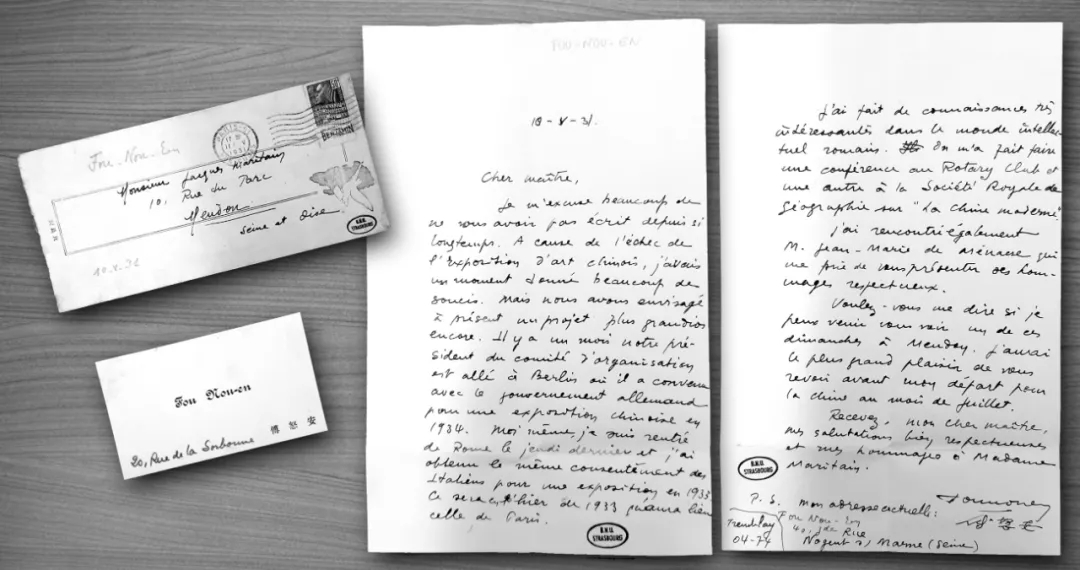 Fou-Nou-En
PARIS
Monsieur Jacques Maritain
10, Rue du Parc
Meudon
Seine et Oise
B.N.U. STRASBOURG
10.V.31
Fou Nou-en
傅怒安
20, Rue de la Sorbonne
FOU-NOU-EN
10-V-31.
Cher maître,
Je m'excuse beaucoup de
ne vous avoir pas écrit depuis si
longtemps. A cause de l'échec de
l'Exposition d'art chinois, j'avais
un moment donné beaucoup de
soucis. Mais nous avons envisagé
à présent un projet plus grandiose
encore. Il y a un mois notre pré-
sident du comité d'organisation
est allé à Berlin où il a convenu
avec le gouvernement allemand
pour une exposition chinoise en
1934. Moi même, je suis rentré
de Rome le jeudi dernier et j'ai
obtenu le même consentement des
Italiens pour une exposition en 1933
Ce sera l'hier de 1933 qu'aura lieu
celle de Paris.
B.N.U. STRASBOURG
J'ai fait de connaissances très
intéressantes dans le monde intellec
tuel romains. On m'a fait faire
une conférence au Rotary Club et
une autre à la Société Royale de
Géographie sur "La Chine moderne".
J'ai rencontré également
M. Jean-Marie de Ménasce qui
me prie de vous présenter ses hom-
mages respectueux.
Voulez-vous me dire si je
peux venir vous voir un de ces
dimanches à Meudon. J'aurai
le plus grand plaisir de vous
revoir avant mon départ pour
la Chine au mois de juillet.
Recevez, mon cher maître,
mes salutations bien respectueuses
et mes hommages à Madame
Maritain.
B.N.U. STRASBOURG
P.S. mon adresse actuelle:
Fou Nou-En
40, de Rue
Nogent s/ Marne (Seine)
Tremblay
04-74